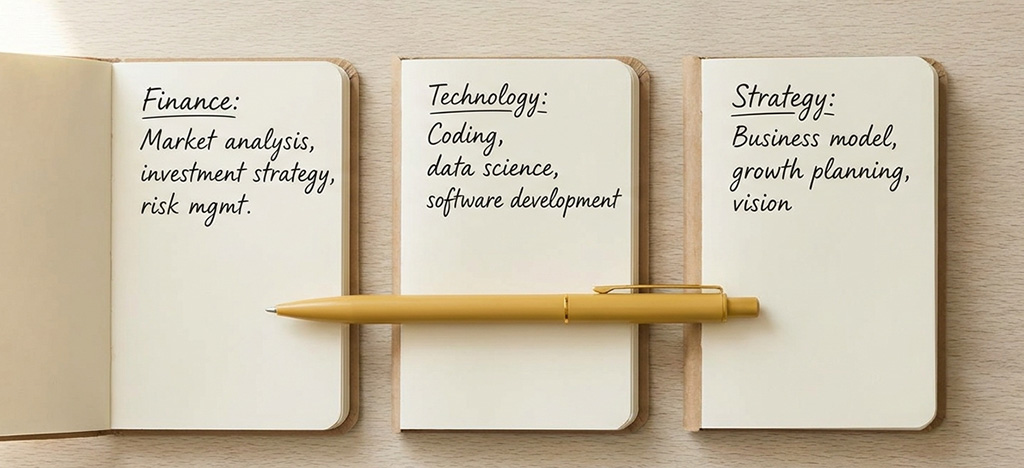 Finance:
Market analysis,
investment strategy,
risk mgmt.
Technology:
Coding,
data science,
software development
Strategy:
Business model,
growth planning,
vision